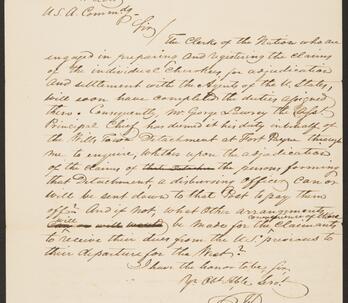 U.S.A. Commandg
Sir/
The Clerks of the Nation who are
engaged in preparing and registering the claims
of the individual Cherokees for adjudication
and settlement with the Agents of the U. States,
will soon have completed the duties assigned
them. Consequently, Mr George Lowrey the Asst
Principal Chief has deemed it his duty in behalf of
the Wills Town Detachment at Fort Payne through
me to enquire, whether upon the adjudication
of the claims of the persons forming
that Detachment, a disbursing officer can or
will be sent down to that Post to pay them
off? And if not, what other arrangements
will be made for the Claimants
to receive their dues from the U.S. previous to
their departure for the West?
I have the honor to be, Sir,
Yr Obt Hble Servt